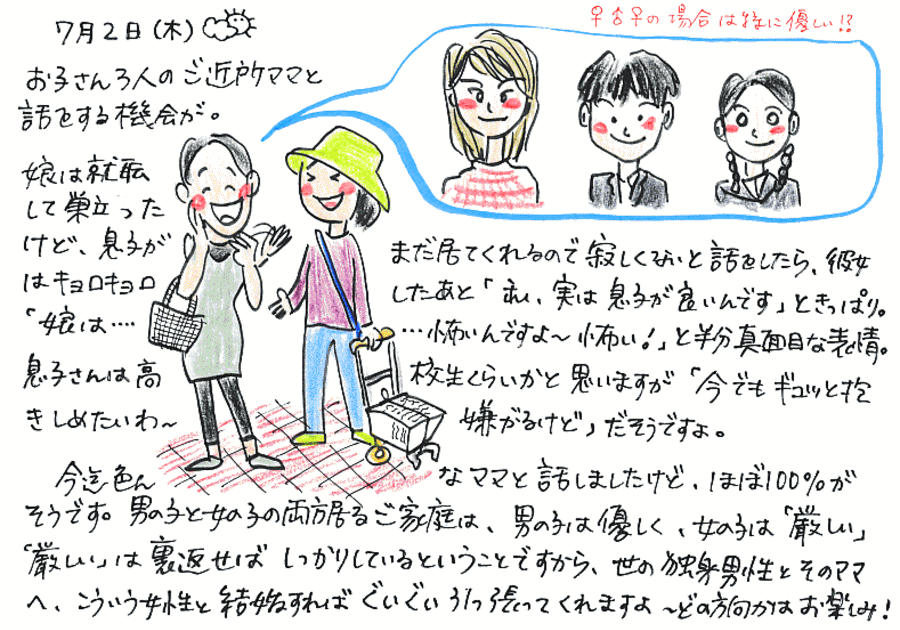 7月2日(木)
♀♂♀の場合は特に優しい!?
お子さん3人のご近所ママと
話をする機会が。
娘は就職
して巣立った
けど、息子が まだ居てくれるので寂しくないと話をしたら、彼女
はキョロキョロ したあと「私、実は息子が良いんです」ときっぱり。
「娘は‥‥ …怖いんですよ〜怖い!」と半分真面目な表情。
息子さんは高 校生くらいかと思いますが「今でもギュッと抱
きしめたいわ〜 嫌がるけど」だそうですよ。
今迄色ん なママと話しましたけど、ほぼ100%が
そうです。男の子と女の子の両方居るご家庭は、男の子は優しく、女の子は「厳しい」
「厳しい」は裏返せば しっかりしているということですから、世の独身男性とそのママ
へ、こういう女性と結婚すればぐいぐい引っ張ってくれますよ〜どの方向かはお楽しみ!